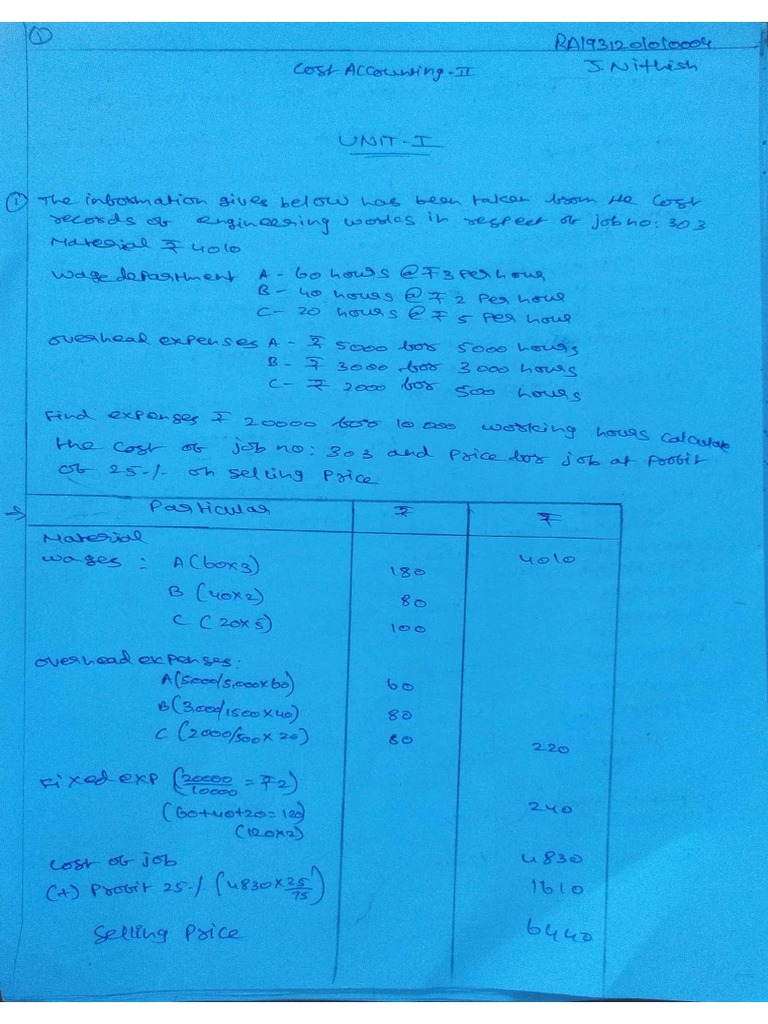 ①
RA1931201010004
Cost Accounting-II
J. Nithish
UNIT-I
① The information gives below has been taken from the cost
records of engineering works in respect of job no: 303
Material ₹ 4010
Wage department A - 60 hours @ ₹3 per hour
B - 40 hours @ ₹ 2 Per hour
C - 20 hours @ ₹ 5 per hour
Overhead expenses A - ₹ 5000 for 5000 hours
B - ₹ 3000 for 3000 hours
C - ₹ 2000 for 500 hours
Find expenses ₹ 20000 for 10000 working hours calculate
the cost of job no: 303 and price for job at profit
of 25-/. on selling price
→ Particular ₹ ₹
Material 4010
wages : A (60x3) 180
B (40x2) 80
C (20x5) 100
overhead expenses:
A (5000/5,000x60) 60
B (3000/1500x40) 80
C (2000/500x20) 80 220
Fixed exp (20000/10000 = ₹2)
(60+40+20=120) 240
(120x2)
Cost of job 4830
(+) Profit 25-/. (4830x25/75) 1610
Selling Price 6440